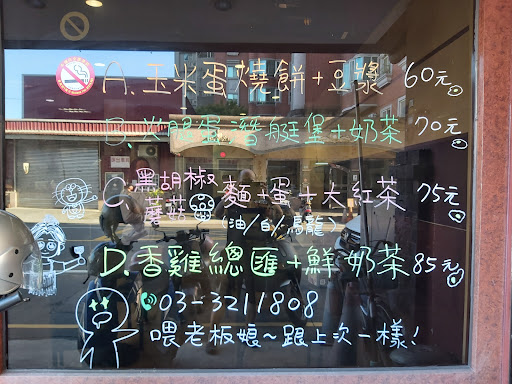 A.玉米蛋燒餅+豆漿 60元
B.火腿蛋潛艇堡+奶茶 70元
C.黑胡椒蘑菇麵+蛋+大紅茶 75元
(油/白/烏龍)
D.香雞總匯+鮮奶茶 85元
03-3211808
喂老板娘~跟上次一樣!